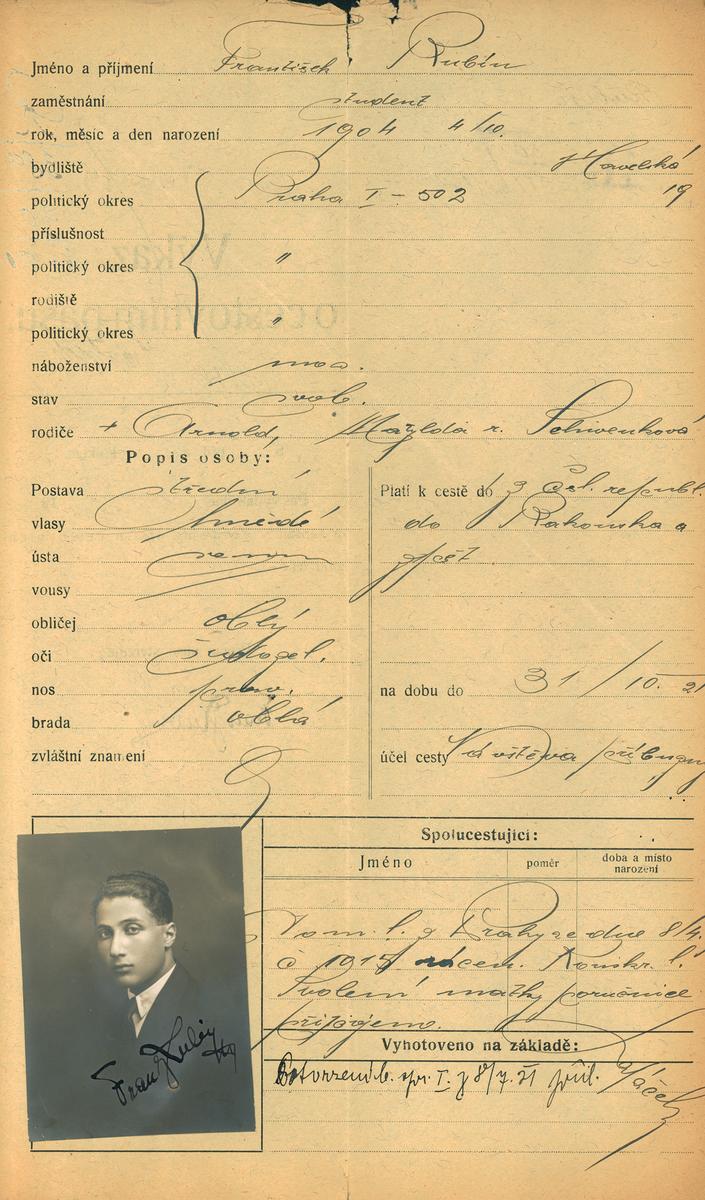 Jméno a příjmení František Rubín
zaměstnání student
rok, měsíc a den narození 1904 4/10.
bydliště Havelská
politický okres Praha I - 502 19
příslušnost
politický okres "
rodiště
politický okres "
náboženství moa.
stav svob.
rodiče + Arnold, Matylda r. Schwenková
Popis osoby:
Postava střední
vlasy hnědé
ústa
vousy
obličej oblý
oči
nos prav.
brada oblá
zvláštní znamení
Platí k cestě do z Čsl. republ.
do Rakouska a
zpět
na dobu do 31/10. 21
účel cesty Návštěva příbuzný
Spolucestující:
Jméno poměr doba a místo narození
Dom. l. z Prahy ze dne 8/4.
1915
Svolení matky poručnice
připojeno.
Vyhotoveno na základě:
I. z 8/7. 21 příl.
Franz Rubin